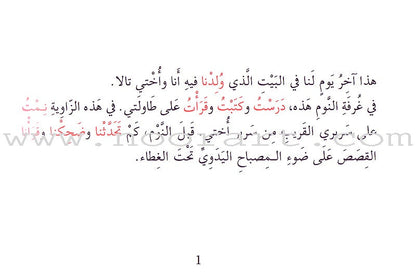 هذا آخِرُ يَومٍ لَنا في البَيْتِ الَّذي وُلِدْنا فيهِ أَنا وأُخْتي تالا.
في غُرفَةِ النَّومِ هَذه، دَرَسْتُ وكَتَبْتُ وقَرَأْتُ عَلى طاوِلَتي. في هَذه الزّاوِيةِ نِمْتُ
على سَريري القَريبِ مِن سَريرِ أُختي. قَبلَ النَّوْمِ، كَمْ تَحَدَّثْنا وضَحِكْنا وقَرَأْنا
القِصَصَ عَلَى ضَوءِ المِصباحِ اليَدَوِيِّ تَحْتَ الغِطاء.
1